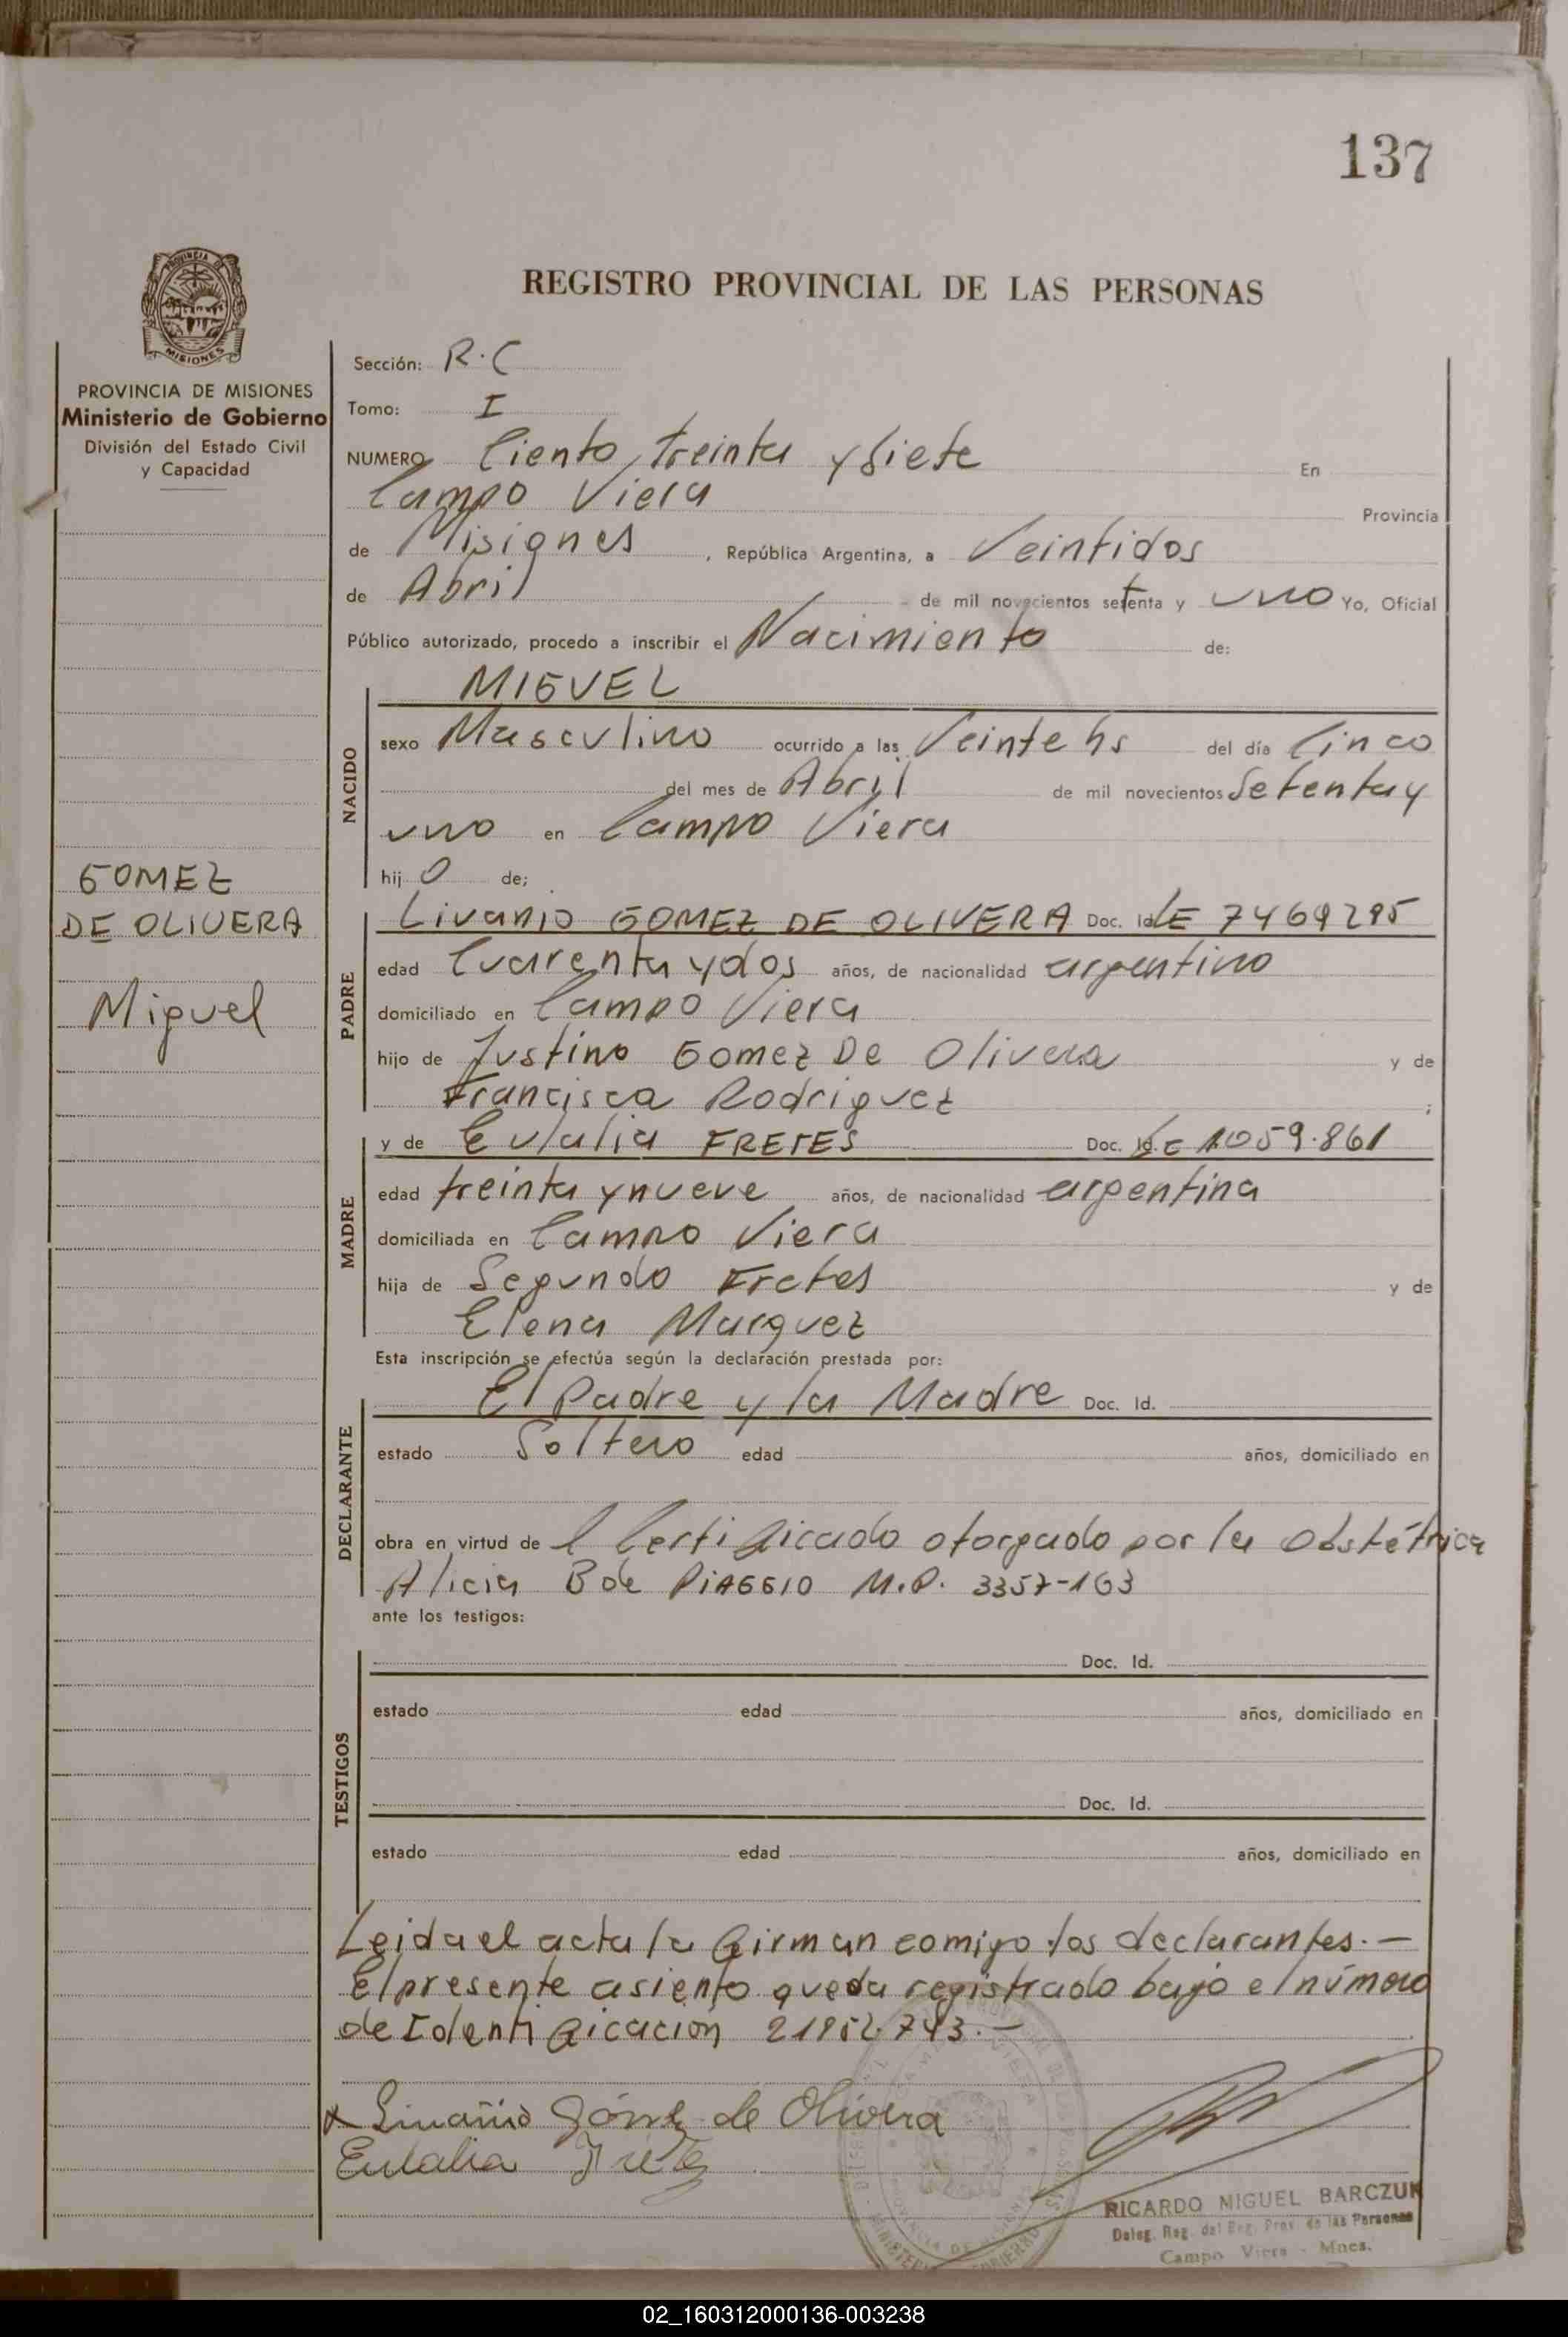 137
REGISTRO PROVINCIAL DE LAS PERSONAS
PROVINCIA DE MISIONES
Ministerio de Gobierno
División del Estado Civil
y Capacidad
GOMEZ
DE OLIVERA
Miguel
Sección: R.C
Tomo: I
NUMERO Ciento treinta y siete En
Campo Viera Provincia
de Misiones, República Argentina, a Veintidos
de Abril de mil novecientos setenta y uno Yo, Oficial
Público autorizado, procedo a inscribir el Nacimiento de:
NACIDO
MIGUEL
sexo Masculino ocurrido a las Veinte hs del día Cinco
del mes de Abril de mil novecientos Setenta y
uno en Campo Viera
hij o de;
PADRE
Livanio GOMEZ DE OLIVERA Doc. Id. LE 7469295
edad Cuarenta y dos años, de nacionalidad argentino
domiciliado en Campo Viera
hijo de Justino Gomez De Olivera y de
Francisca Rodriguez ;
MADRE
y de Eulalia FRETES Doc. Id. 1.059.861
edad treinta y nueve años, de nacionalidad argentina
domiciliada en Campo Viera
hija de Segundo Fretes y de
Elena Marquez
Esta inscripción se efectúa según la declaración prestada por:
DECLARANTE
El Padre y la Madre Doc. Id.
estado Soltero edad años, domiciliado en
obra en virtud de l Certificado otorgado por la Obstétrica
Alicia B de PIAGGIO M.P. 3357-163
ante los testigos:
TESTIGOS
Doc. Id.
estado edad años, domiciliado en
Doc. Id.
estado edad años, domiciliado en
Leida el acta la firman comigo los declarantes.-
El presente asiento queda registrado bajo el número
de Identificación 21852.743.-
x Livañio Gómez de Olivera
Eulalia Fretes
RICARDO MIGUEL BARCZUK
Deleg. Reg. del Reg. Prov. de las Personas
Campo Viera - Mnes.
02_160312000136-003238